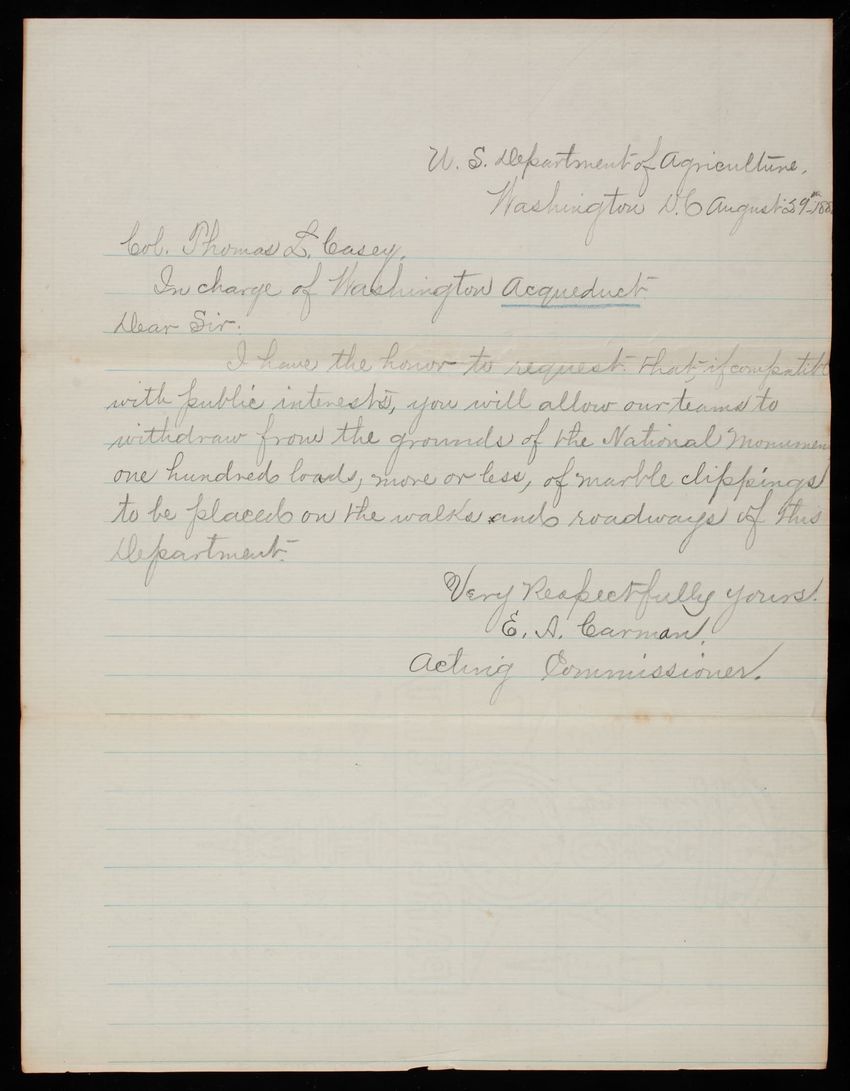 U. S. Department of Agriculture,
Washington D.C August 29th 188
Col. Thomas L. Casey,
In charge of Washington Acqueduct
Dear Sir:
I have the honor to request that, if compatible
with public interests, you will allow our teams to
withdraw from the grounds of the National Monumen
one hundred loads, more or less, of marble clippings
to be placed on the walks and roadways of this
Department.
Very Respectfully yours.
E. A. Carman,
Acting Commissioner.